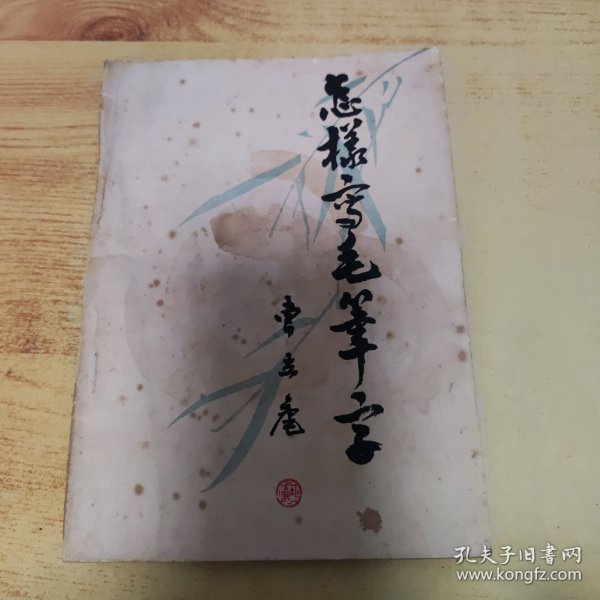 怎樣写毛筆字
曹立庵
孔夫子旧书网
www.kongfz.com